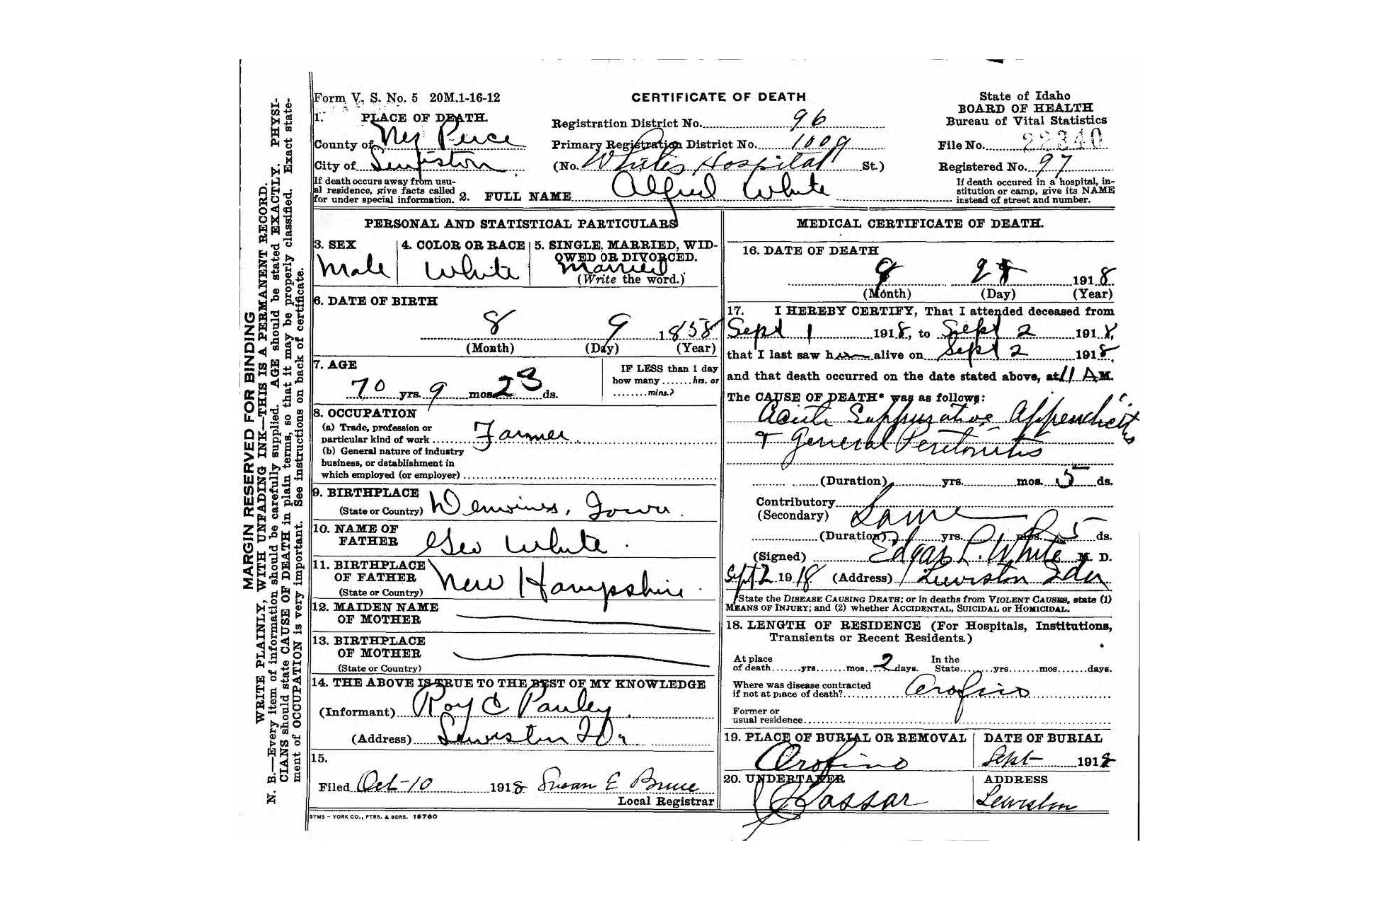 Form V. S. No. 5 20M.1-16-12
CERTIFICATE OF DEATH
State of Idaho
BOARD OF HEALTH
Bureau of Vital Statistics
File No. 22340
Registered No. 97
If death occured in a hospital, in-
stitution or camp, give its NAME
instead of street and number.
1. PLACE OF DEATH.
County of Nez Perce
City of Lewiston
If death occurs away from usu-
al residence, give facts called
for under special information.
Registration District No. 96
Primary Registration District No. 1009
(No. Whites Hospital St.)
2. FULL NAME Alfred White
PERSONAL AND STATISTICAL PARTICULARS
3. SEX
Male
4. COLOR OR RACE
White
5. SINGLE, MARRIED, WID-
OWED OR DIVORCED.
Married
(Write the word.)
6. DATE OF BIRTH
8 9 1858
(Month) (Day) (Year)
7. AGE
70 yrs. 9 mos. 23 ds.
IF LESS than 1 day
how many ....... hrs. or
........ mins.?
8. OCCUPATION
(a) Trade, profession or
particular kind of work Farmer
(b) General nature of industry
business, or establishment in
which employed (or employer)
9. BIRTHPLACE
(State or Country) Iowa
10. NAME OF
FATHER Geo White
11. BIRTHPLACE
OF FATHER
(State or Country) New Hampshire
12. MAIDEN NAME
OF MOTHER
13. BIRTHPLACE
OF MOTHER
(State or Country)
14. THE ABOVE IS TRUE TO THE BEST OF MY KNOWLEDGE
(Informant) Roy C Pauley
(Address) Lewiston Ida
15.
Filed Oct-10 1918 Susan E Bruce
Local Registrar
SYMS - YORK CO., PTRS. & BDRS. 19760
MEDICAL CERTIFICATE OF DEATH.
16. DATE OF DEATH
9 1918
(Month) (Day) (Year)
17. I HEREBY CERTIFY, That I attended deceased from
Sept 1 1918, to Sept 2 1918,
that I last saw him alive on Sept 2 1918
and that death occurred on the date stated above, at 11 A M.
The CAUSE OF DEATH* was as follows:
Acute Suppurative Appendicitis
+ General Peritonitis
(Duration) yrs. mos. 5 ds.
Contributory
(Secondary) Same
(Duration) yrs. mos. 5 ds.
(Signed) Edgar L. White M. D.
Sept 2 1918 (Address) Lewiston Ida
*State the DISEASE CAUSING DEATH; or in deaths from VIOLENT CAUSES, state (1)
MEANS OF INJURY; and (2) whether ACCIDENTAL, SUICIDAL or HOMICIDAL.
18. LENGTH OF RESIDENCE (For Hospitals, Institutions,
Transients or Recent Residents.)
At place
of death.......yrs.......mos. 2 days.
In the
State.......yrs.......mos.......days.
Where was disease contracted
if not at place of death? Orofino
Former or
usual residence
19. PLACE OF BURIAL OR REMOVAL
Orofino
DATE OF BURIAL
Sept- 1918
20. UNDERTAKER
Vassar
ADDRESS
Lewiston
MARGIN RESERVED FOR BINDING
WRITE PLAINLY, WITH UNFADING INK—THIS IS A PERMANENT RECORD.
N. B.—Every item of information should be carefully supplied. AGE should be stated EXACTLY. PHYSI-
CIANS should state CAUSE OF DEATH in plain terms, so that it may be properly classified. Exact state-
ment of OCCUPATION is very important. See instructions on back of certificate.